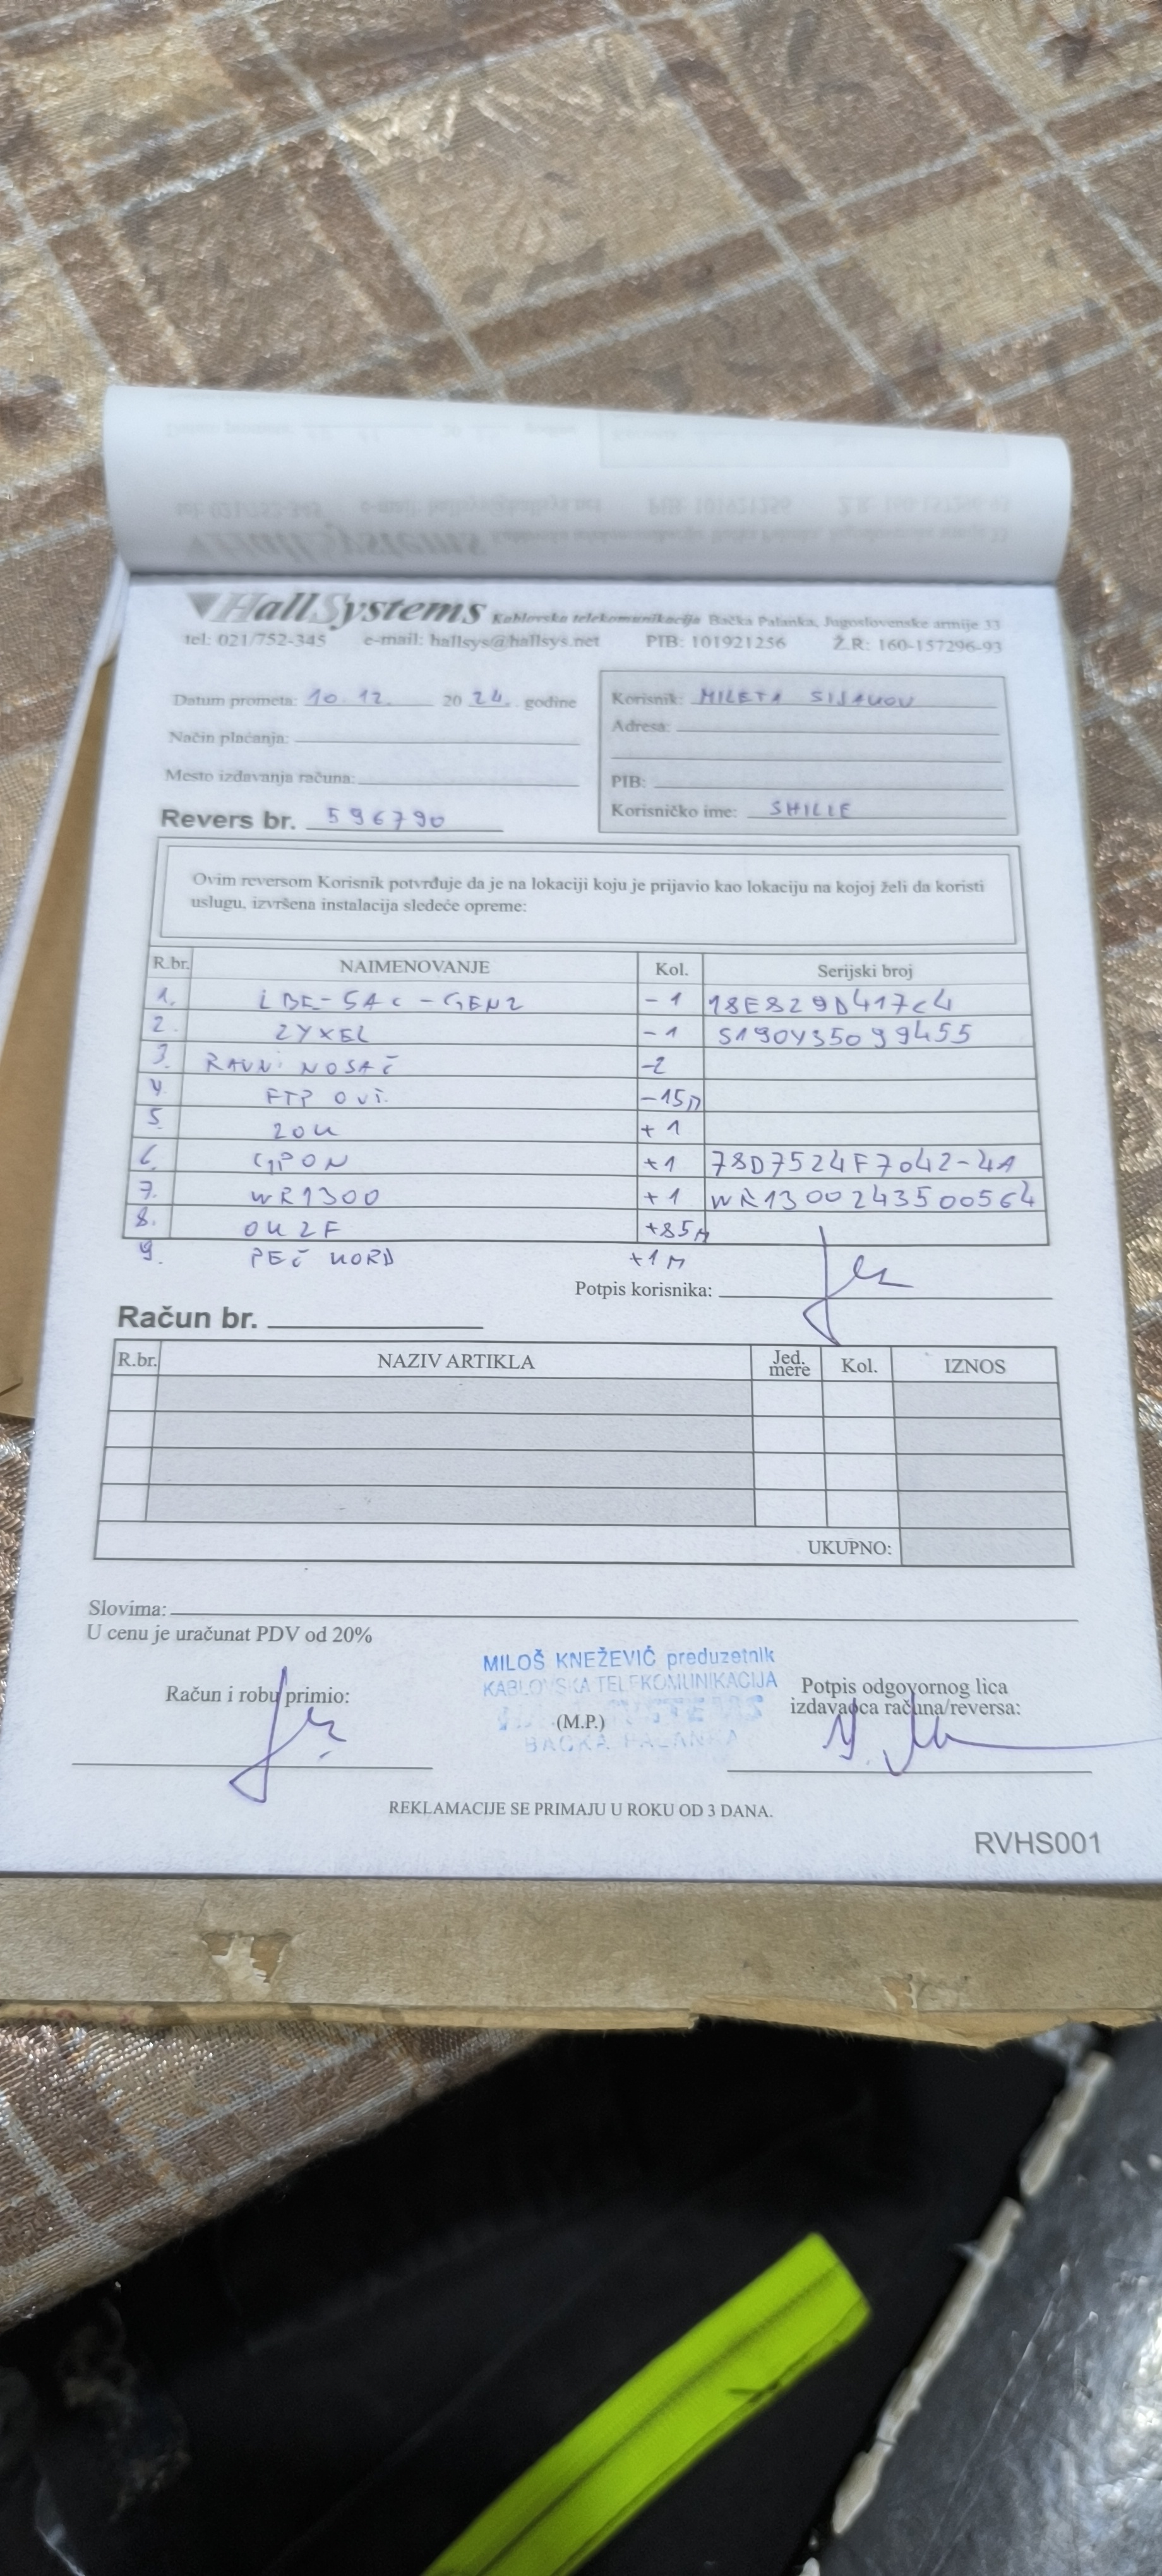 HallSystems Kablovska telekomunikacija Bačka Palanka, Jugoslovenske armije 33
tel: 021/752-345 e-mail: hallsys@hallsys.net PIB: 101921256 Ž.R: 160-157296-93
Datum prometa: 10. 12. 20 24. godine
Način plaćanja:
Mesto izdavanja računa:
Revers br. 596790
Korisnik: MILETA
Adresa:
PIB:
Korisničko ime: SHILLE
Ovim reversom Korisnik potvrđuje da je na lokaciji koju je prijavio kao lokaciju na kojoj želi da koristi
uslugu, izvršena instalacija sledeće opreme:
R.br. NAIMENOVANJE Kol. Serijski broj
1. LBE-5AC-GEN2 -1 18E829D417C4
2. ZYXEL -1 S190Y35099455
3. RAVNI NOSAČ -2
4. FTP OVI. -15M
5. 20M +1
6. GPON +1 78D7524F7042-4A
7. WR1300 +1 WR1300243500564
8. OK2F +85M
9. PEČ KORD +1M
Potpis korisnika:
Račun br.
R.br. NAZIV ARTIKLA Jed. mere Kol. IZNOS
UKUPNO:
Slovima:
U cenu je uračunat PDV od 20%
Račun i robu primio:
MILOŠ KNEŽEVIĆ preduzetnik
KABLOVSKA TELEKOMUNIKACIJA
(M.P.)
BAČKA PALANKA
Potpis odgovornog lica
izdavaoca računa/reversa:
REKLAMACIJE SE PRIMAJU U ROKU OD 3 DANA.
RVHS001